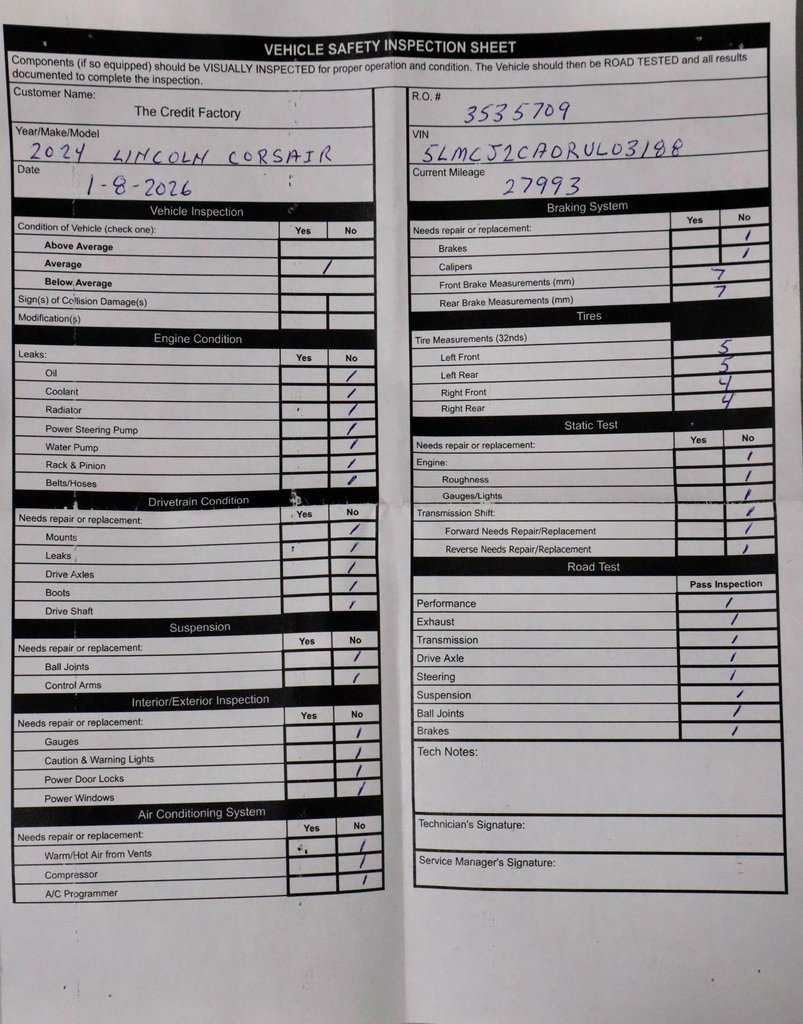 VEHICLE SAFETY INSPECTION SHEET
Components (if so equipped) should be VISUALLY INSPECTED for proper operation and condition. The Vehicle should then be ROAD TESTED and all results
documented to complete the inspection.
Customer Name:
The Credit Factory
Year/Make/Model
2024 LINCOLN CORSAIR
Date
1-8-2026
Vehicle Inspection
Condition of Vehicle (check one): Yes No
Above Average
Average /
Below Average
Sign(s) of Collision Damage(s)
Modification(s)
Engine Condition
Leaks: Yes No
Oil /
Coolant /
Radiator /
Power Steering Pump /
Water Pump /
Rack & Pinion /
Belts/Hoses /
Drivetrain Condition
Needs repair or replacement: Yes No
Mounts /
Leaks /
Drive Axles /
Boots /
Drive Shaft /
Suspension
Needs repair or replacement: Yes No
Ball Joints /
Control Arms /
Interior/Exterior Inspection
Needs repair or replacement: Yes No
Gauges /
Caution & Warning Lights /
Power Door Locks /
Power Windows /
Air Conditioning System
Needs repair or replacement: Yes No
Warm/Hot Air from Vents /
Compressor /
A/C Programmer /
R.O. #
3535709
VIN
5LMCJ2CA0RUL03188
Current Mileage
27993
Braking System
Needs repair or replacement: Yes No
Brakes /
Calipers /
Front Brake Measurements (mm) 7
Rear Brake Measurements (mm) 7
Tires
Tire Measurements (32nds)
Left Front 5
Left Rear 5
Right Front 4
Right Rear 4
Static Test
Needs repair or replacement: Yes No
Engine: /
Roughness /
Gauges/Lights /
Transmission Shift: /
Forward Needs Repair/Replacement /
Reverse Needs Repair/Replacement /
Road Test
Pass Inspection
Performance /
Exhaust /
Transmission /
Drive Axle /
Steering /
Suspension /
Ball Joints /
Brakes /
Tech Notes:
Technician's Signature:
Service Manager's Signature: